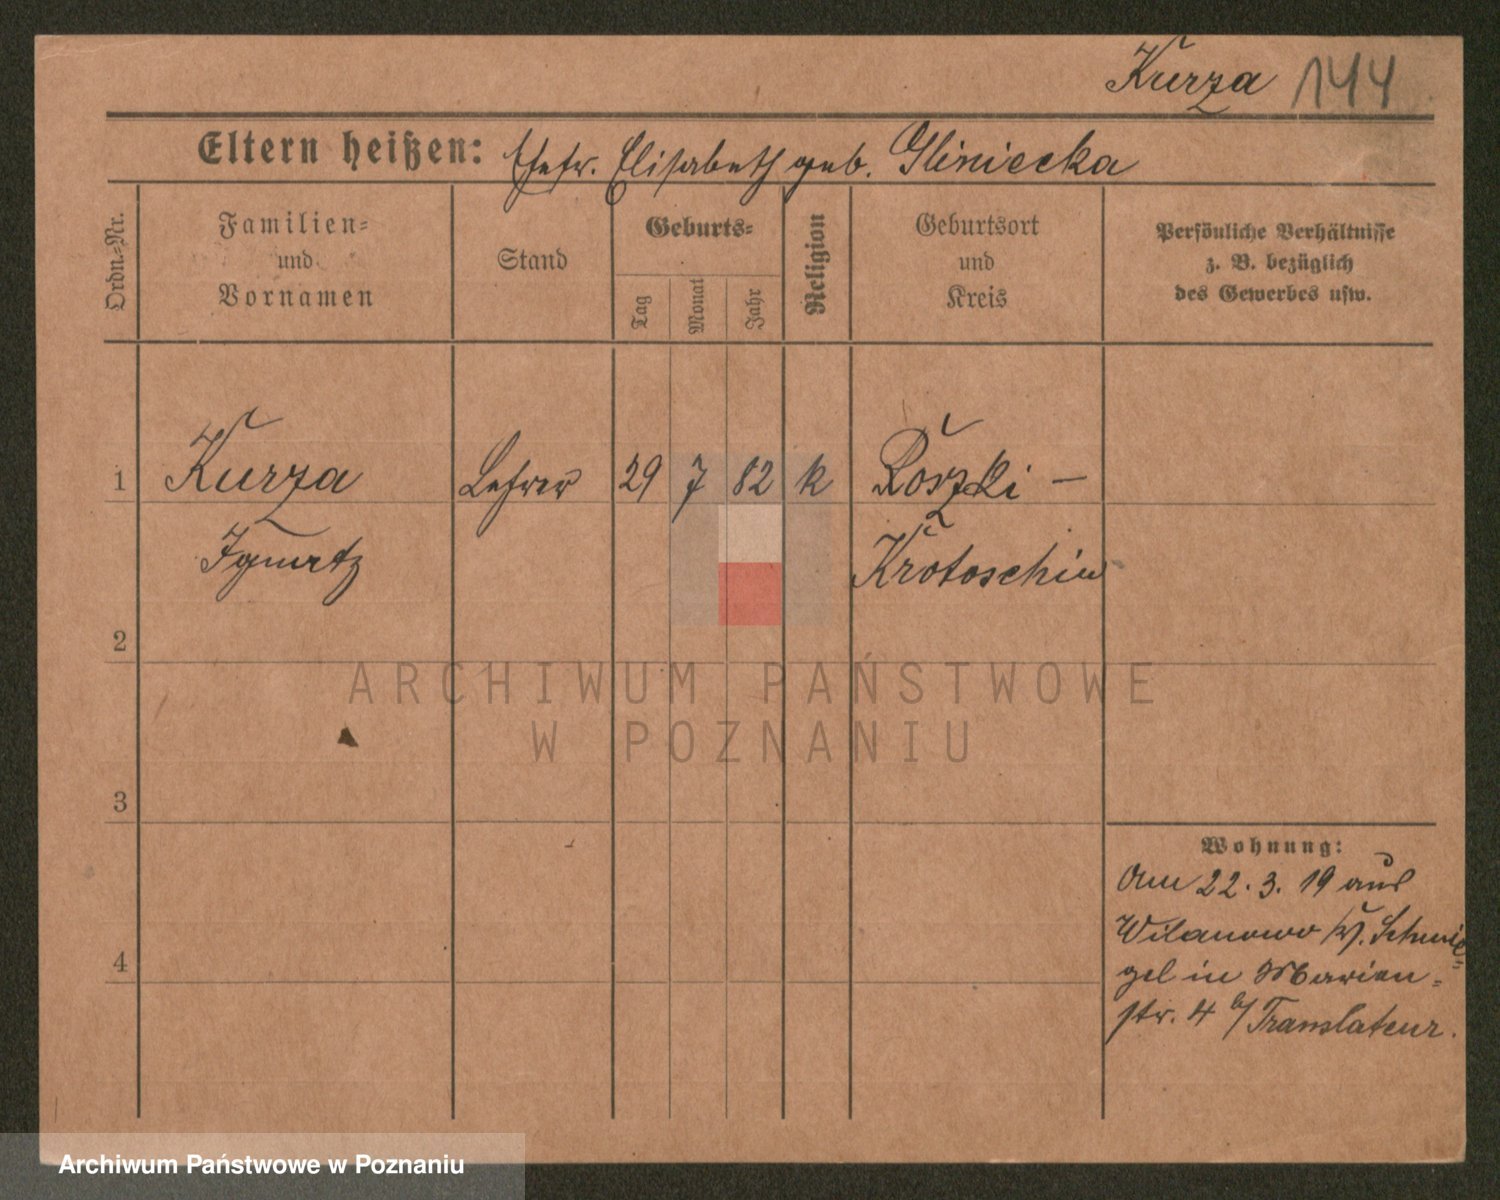 Kurza 144
Eltern heißen: Ehefr. Elisabeth geb. Gliniecka
Ordn.-Nr.
Familien-
und
Vornamen
Stand
Geburts-
Tag
Monat
Jahr
Religion
Geburtsort
und
Kreis
Persönliche Verhältnisse
z. B. bezüglich
des Gewerbes usw.
1 Kurza Lehrer 29 7 82 k Roszki –
Ignatz Krotoschin
2
ARCHIWUM PAŃSTWOWE
W POZNANIU
3
Wohnung:
Am 22. 3. 19 aus
Wilanowo Kr. Schmie-
gel in Marien-
str. 4 b/ Translateur.
4
Archiwum Państwowe w Poznaniu